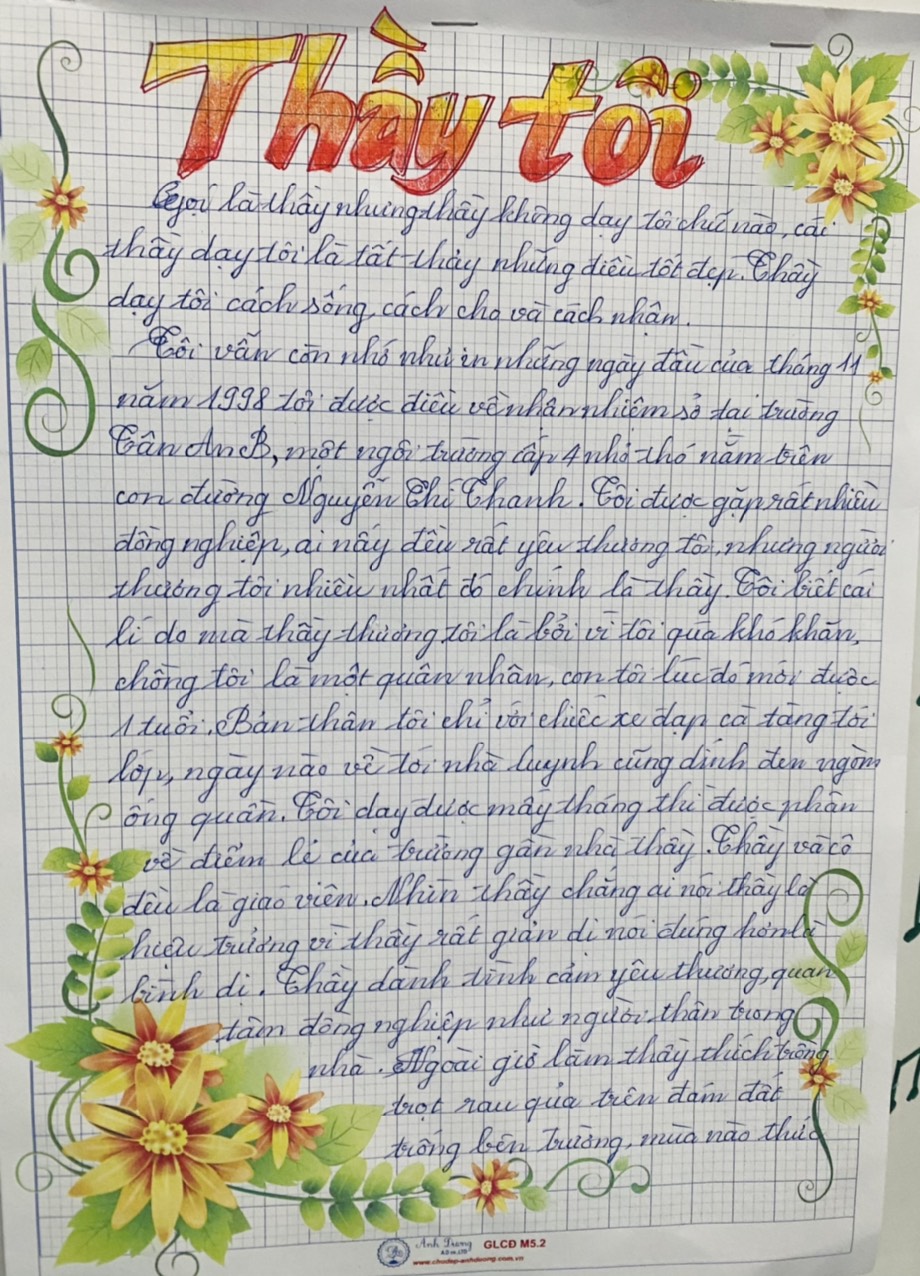 Thầy tôi
Gọi là thầy nhưng thầy không dạy tôi chữ nào, cái
thầy dạy tôi là tất thảy những điều tốt đẹp. Thầy
dạy tôi cách sống, cách cho và cách nhận.
Tôi vẫn còn nhớ như in những ngày đầu của tháng 11
năm 1998 tôi được điều về nhận nhiệm sở tại trường
Tân An B, một ngôi trường cấp 4 nhỏ thó nằm trên
con đường Nguyễn Chí Thanh. Tôi được gặp rất nhiều
đồng nghiệp, ai nấy đều rất yêu thương tôi, nhưng người
thương tôi nhiều nhất đó chính là thầy. Tôi biết cái
lí do mà thầy thương tôi là bởi vì tôi quá khó khăn,
chồng tôi là một quân nhân, con tôi lúc đó mới được
1 tuổi. Bản thân tôi chỉ với chiếc xe đạp cà tàng tới
lớp, ngày nào về tới nhà luynh cũng dính đen ngòm
ống quần. Tôi dạy được mấy tháng thì được phân
về điểm lẻ của trường gần nhà thầy. Thầy và cô
đều là giáo viên. Nhìn thầy chẳng ai nói thầy là
hiệu trưởng vì thầy rất giản dị nói đúng hơn là
bình dị. Thầy dành tình cảm yêu thương, quan
tâm đồng nghiệp như người thân trong
nhà. Ngoài giờ làm thầy thích trồng
trọt rau quả trên đám đất
trống bên trường, mùa nào thức
Anh Dương
GLCĐ M5.2
www.chudep-anhduong.com.vn